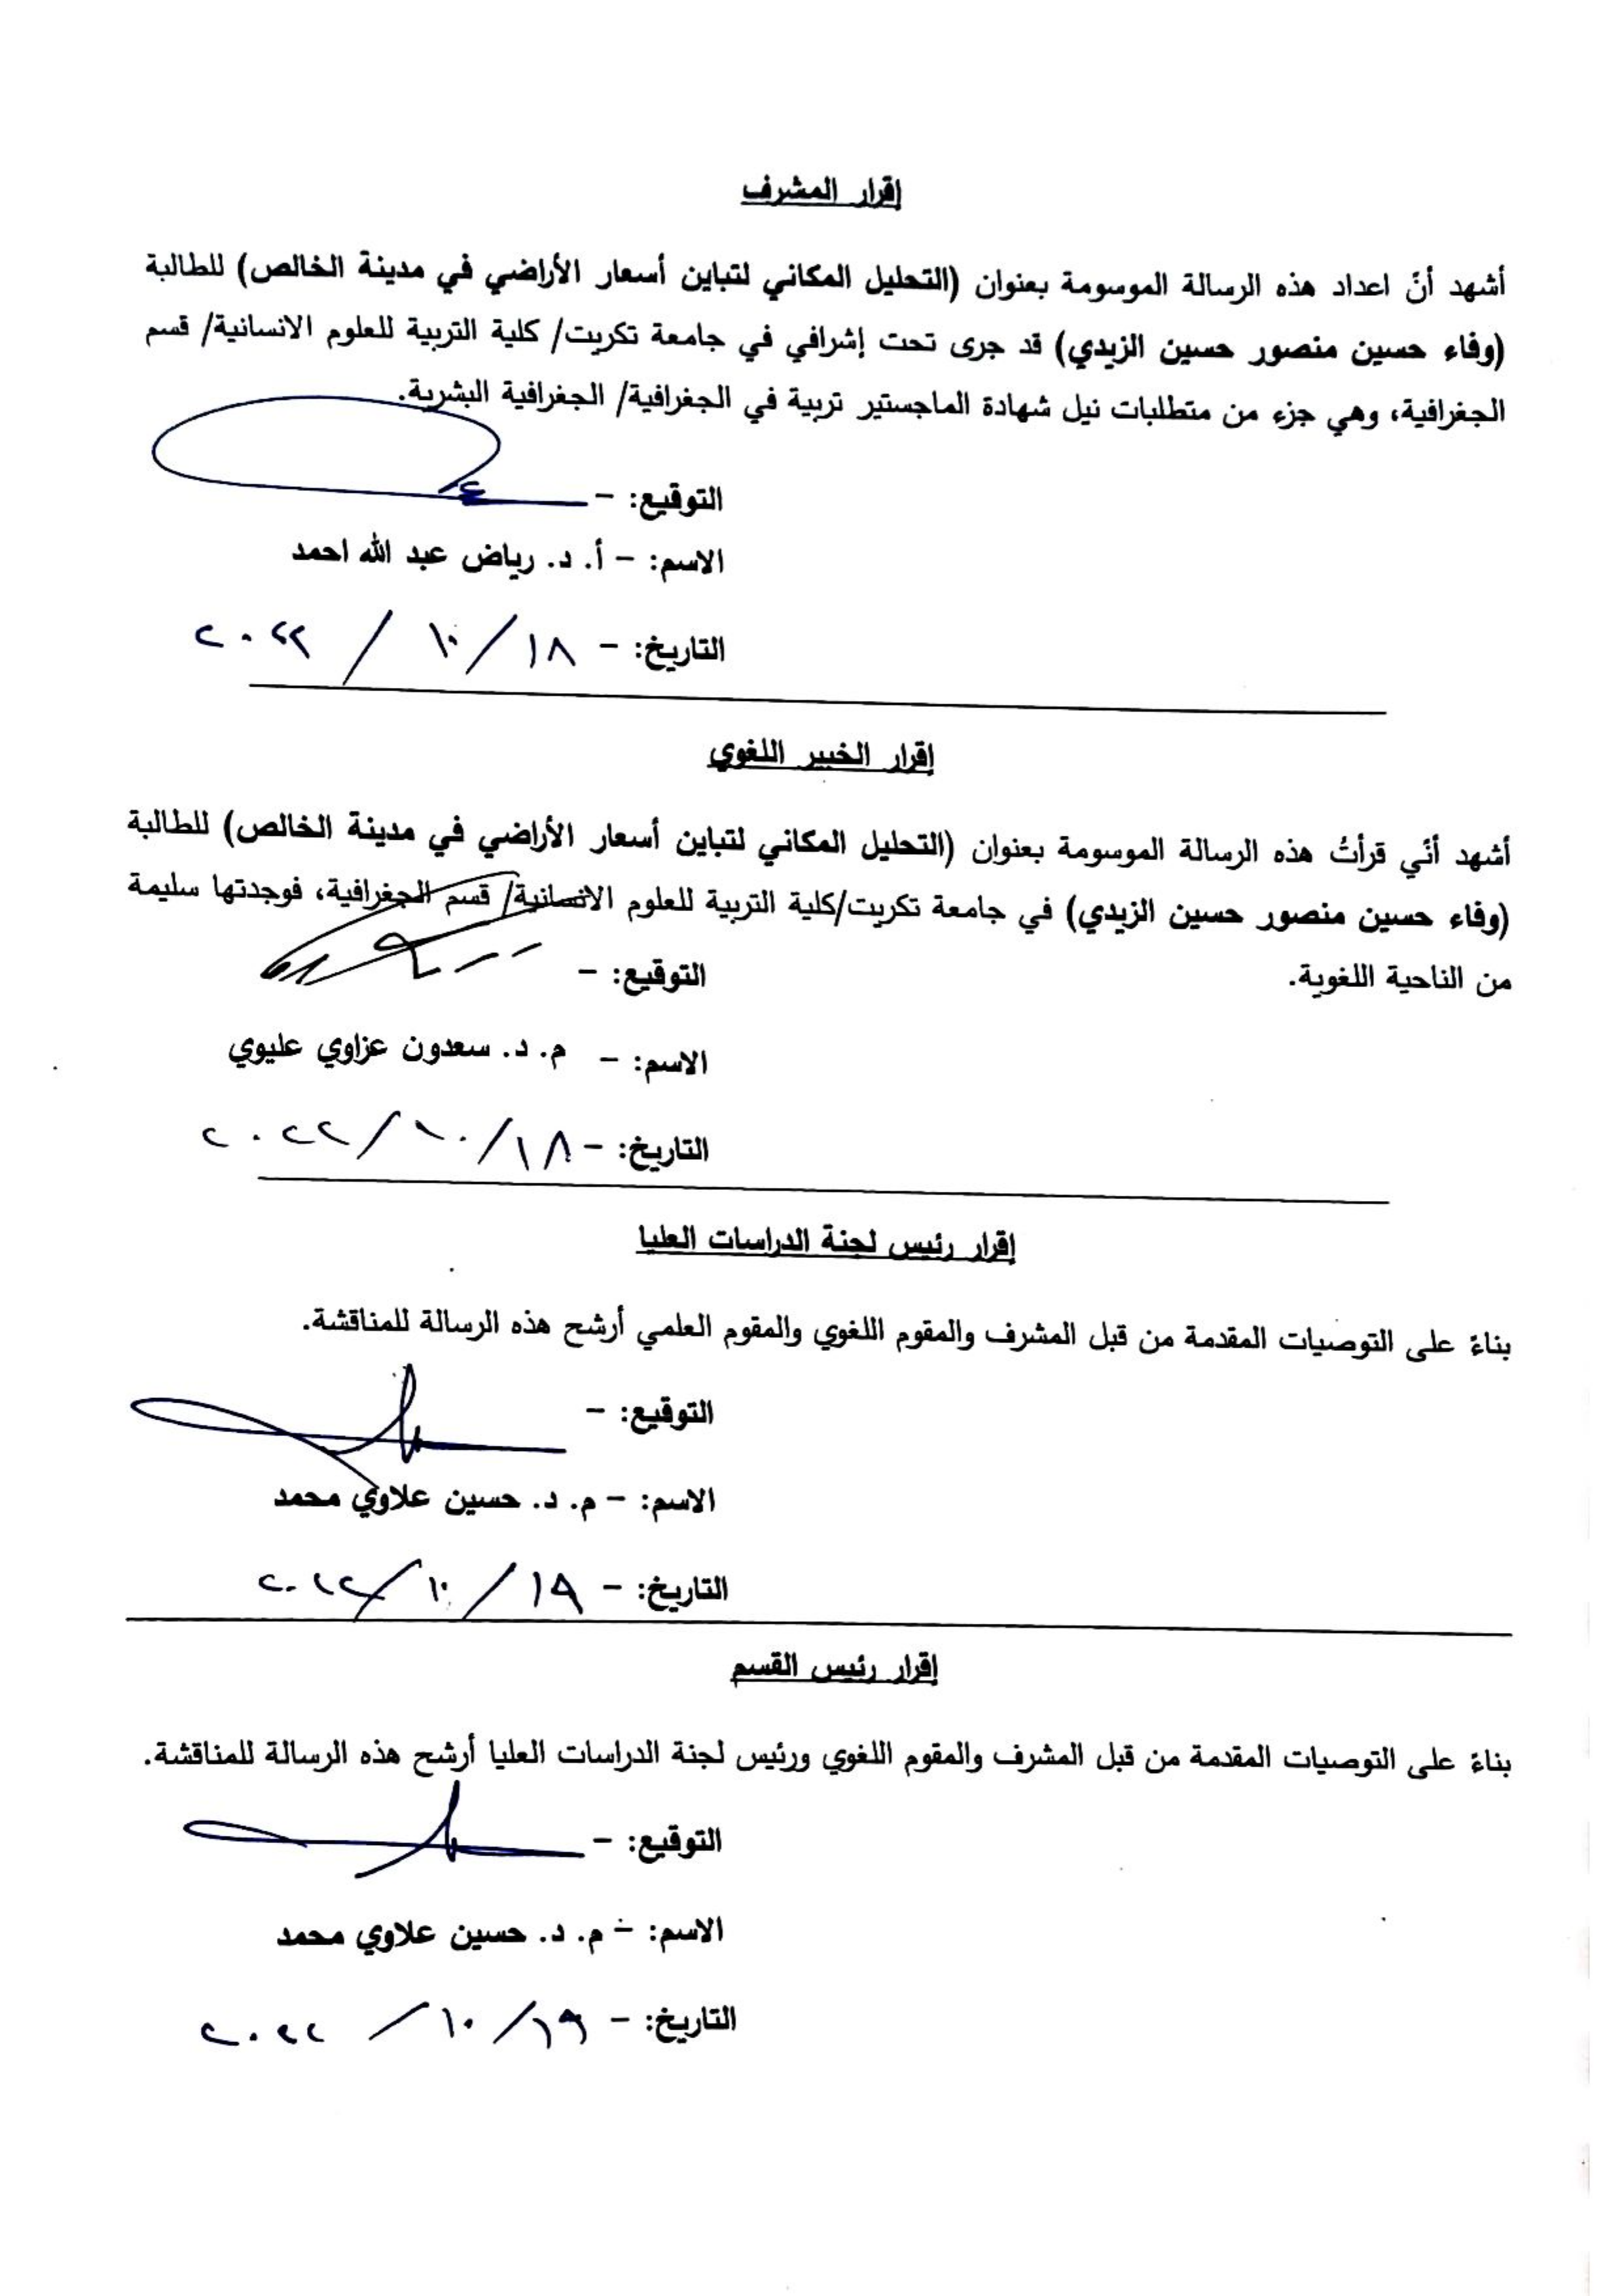 إقرار المشرف
أشهد أنّ اعداد هذه الرسالة الموسومة بعنوان (التحليل المكاني لتباين أسعار الأراضي في مدينة الخالص) للطالبة
(وفاء حسين منصور حسين الزيدي) قد جرى تحت إشرافي في جامعة تكريت/ كلية التربية للعلوم الانسانية/ قسم
الجغرافية، وهي جزء من متطلبات نيل شهادة الماجستير تربية في الجغرافية/ الجغرافية البشرية.
التوقيع: -
الاسم: - أ. د. رياض عبد الله احمد
التاريخ: - ١٨/ ١٠ / ٢٠٢٢
إقرار الخبير اللغوي
أشهد أنّي قرأتُ هذه الرسالة الموسومة بعنوان (التحليل المكاني لتباين أسعار الأراضي في مدينة الخالص) للطالبة
(وفاء حسين منصور حسين الزيدي) في جامعة تكريت/كلية التربية للعلوم الانسانية/ قسم الجغرافية، فوجدتها سليمة
من الناحية اللغوية.
التوقيع: -
الاسم: - م. د. سعدون عزاوي عليوي
التاريخ: - ١٨/ ١٠/ ٢٠٢٢
إقرار رئيس لجنة الدراسات العليا
بناءً على التوصيات المقدمة من قبل المشرف والمقوم اللغوي والمقوم العلمي أرشح هذه الرسالة للمناقشة.
التوقيع: -
الاسم: - م. د. حسين علاوي محمد
التاريخ: - ١٩/ ١٠/ ٢٠٢٢
إقرار رئيس القسم
بناءً على التوصيات المقدمة من قبل المشرف والمقوم اللغوي ورئيس لجنة الدراسات العليا أرشح هذه الرسالة للمناقشة.
التوقيع: -
الاسم: - م. د. حسين علاوي محمد
التاريخ: - ١٩/ ١٠/ ٢٠٢٢